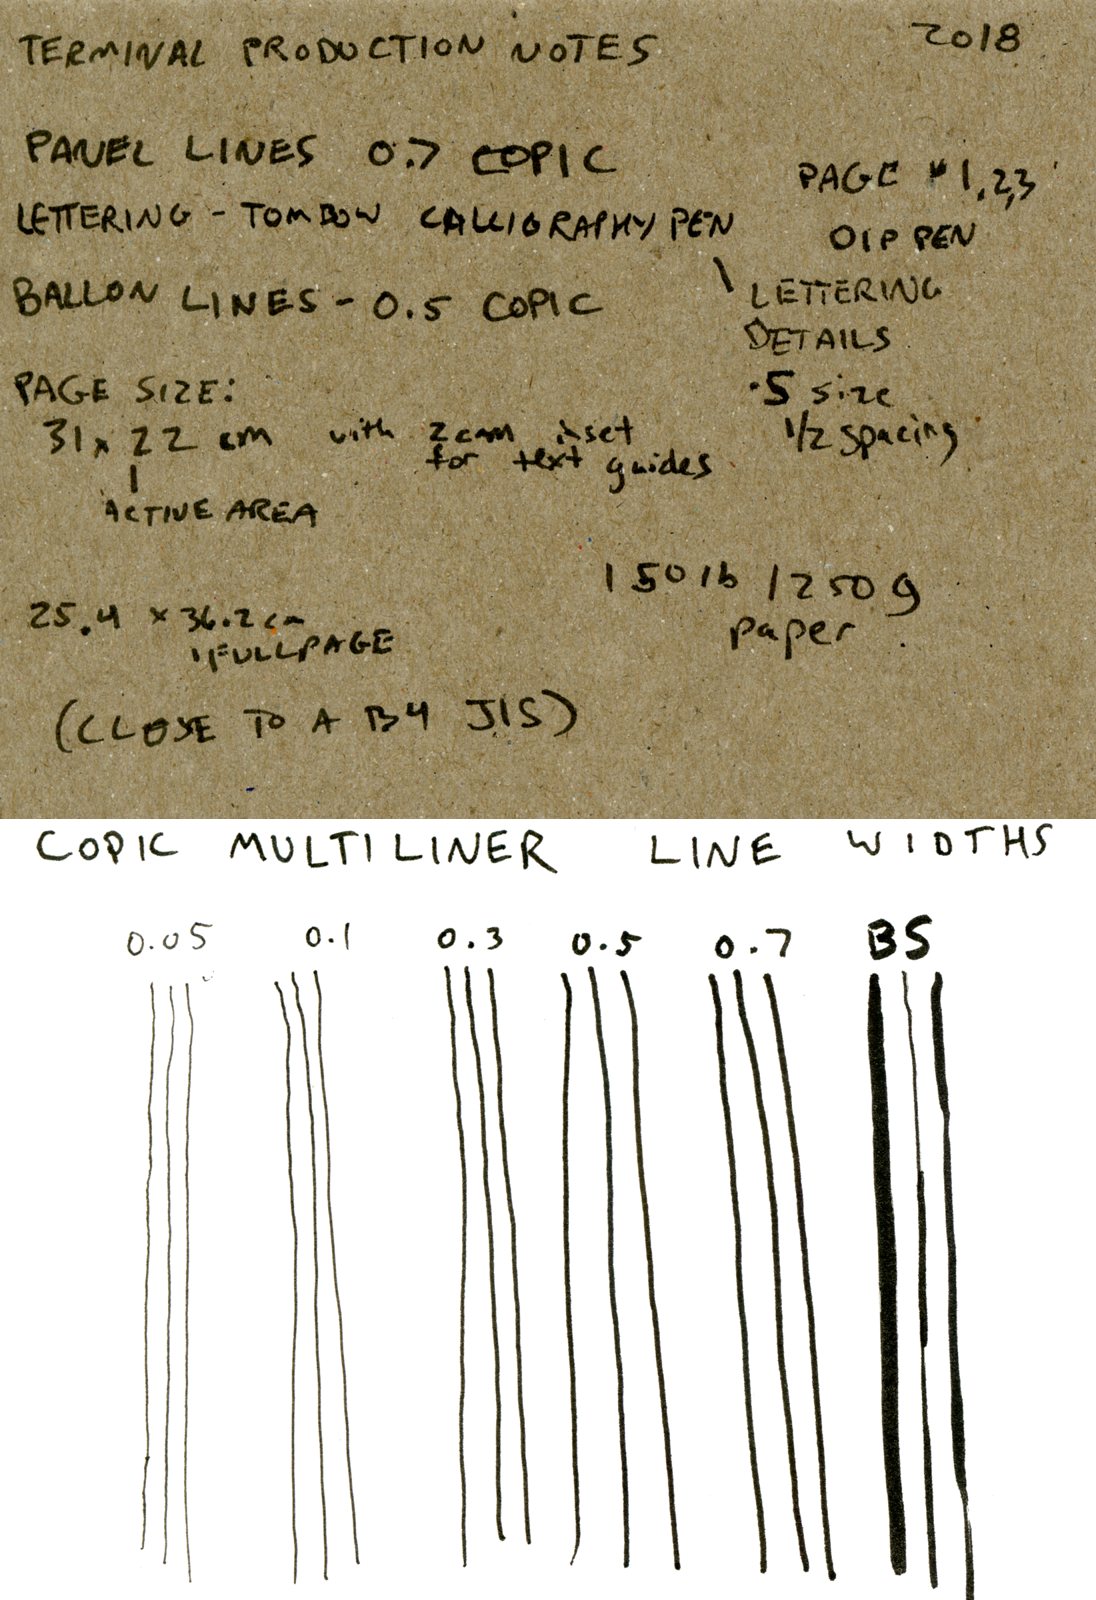 TERMINAL PRODUCTION NOTES 2018
PANEL LINES 0.7 COPIC
LETTERING - TOMBOW CALLIGRAPHY PEN
BALLON LINES - 0.5 COPIC
PAGE # 1,2,3
DIP PEN
LETTERING
DETAILS
.5 size
1/2 spacing
PAGE SIZE:
31 x 22 cm with 2cm inset
for text guides
ACTIVE AREA
150 lb / 250 g
paper
25.4 x 36.2 cm
FULL PAGE
(CLOSE TO A B4 JIS)
COPIC MULTILINER LINE WIDTHS
0.05 0.1 0.3 0.5 0.7 BS